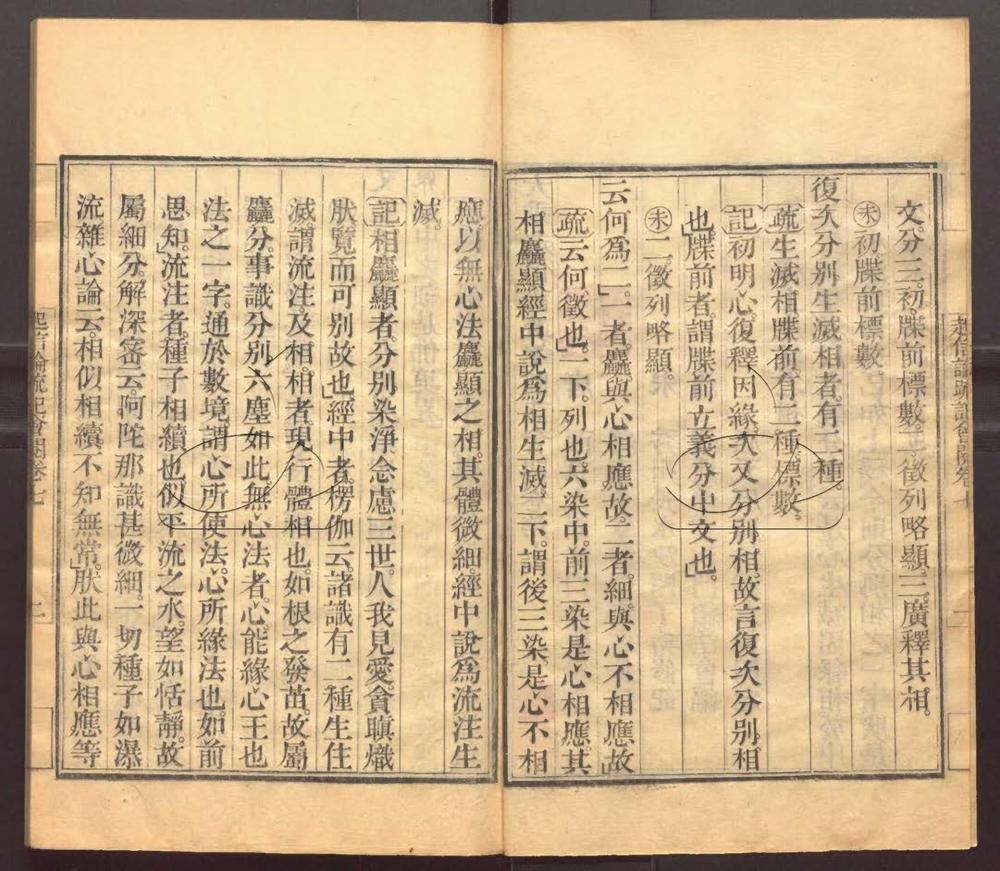 文分三。初。牒前標數。二。徵列略顯。三。廣釋其相。
㊍初牒前標數。
復次分別生滅相者。有二種
疏生滅相牒前。有二種標數。
記初明心。復釋因緣。次又分別相。故言復次分別相
也。牒前者。謂牒前立義分中文也。
二。徵列略顯。
云何爲二。一者。麤。與心相應故。二者。細。與心不相應故
疏云何徵也。一下。列也。六染中。前三染是心相應。其
相麤顯。經中說爲相生滅。二下。謂後三染。是心不相
應。以無心法麤顯之相。其體微細。經中說爲流注生
滅。
記相麤顯者。分別染淨。念慮三世。人我見愛貪瞋熾
肰。覽而可别故也。經中者。楞伽云。諸識有二種生住
滅。謂流注。及相。相者。現行體相也。如根之發苗。故屬
麤分。事識分别六塵如此。無心法者。心能緣心王也
法之一字。通於數境。謂心所使法。心所緣法也。如前
思知。流注者。種子相續也。似乎流之水。望如恬靜。故
屬細分。解深密云。阿陀那識甚微細。一切種子如瀑
流。雜心論云。相似相續。不知無常。肰此與心相應等